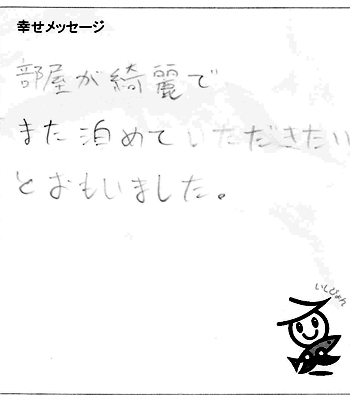 幸せメッセージ
部屋が綺麗で
また泊めていただきたい
とおもいました。
いしぴょん